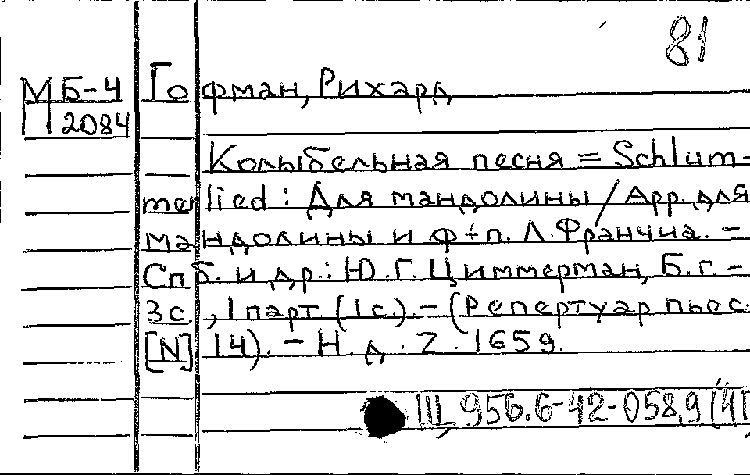 81
МБ-4 Гофман, Рихард
2084
Колыбельная песня = Schlum-
merlied: Для мандолины / Арр. для
мандолины и ф-п. Л. Франчиа. –
Спб. и др.: Ю. Г. Циммерман, Б.г. –
3с, 1 парт (1с). – (Репертуар пьес
[N] 14). – Н. д. Z. 1659.
Щ 956.6-42-058,9 (4I